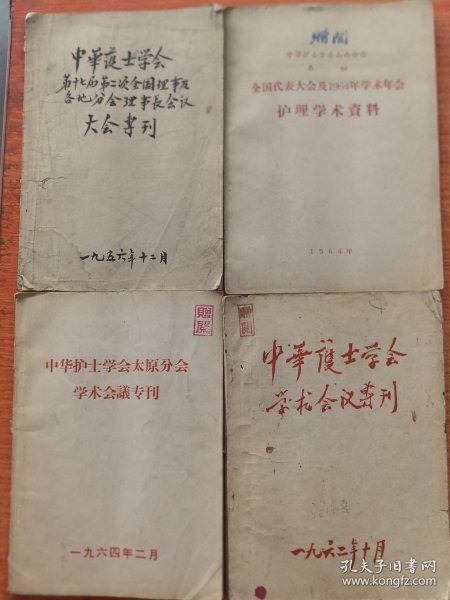 中華護士学会
第十七届第二次全国理事及
各地分会理事長会议
大会専刊
一九五六年十二月
赠阅
中华护士学会山西分会
参加
全国代表大会及1964年学术年会
护理学术資料
1964年
贈閱
中华护士学会太原分会
学术会議专刊
一九六四年二月
贈閱
中華護士学会
学術会议専刊
一九六二年十月
孔夫子旧书网